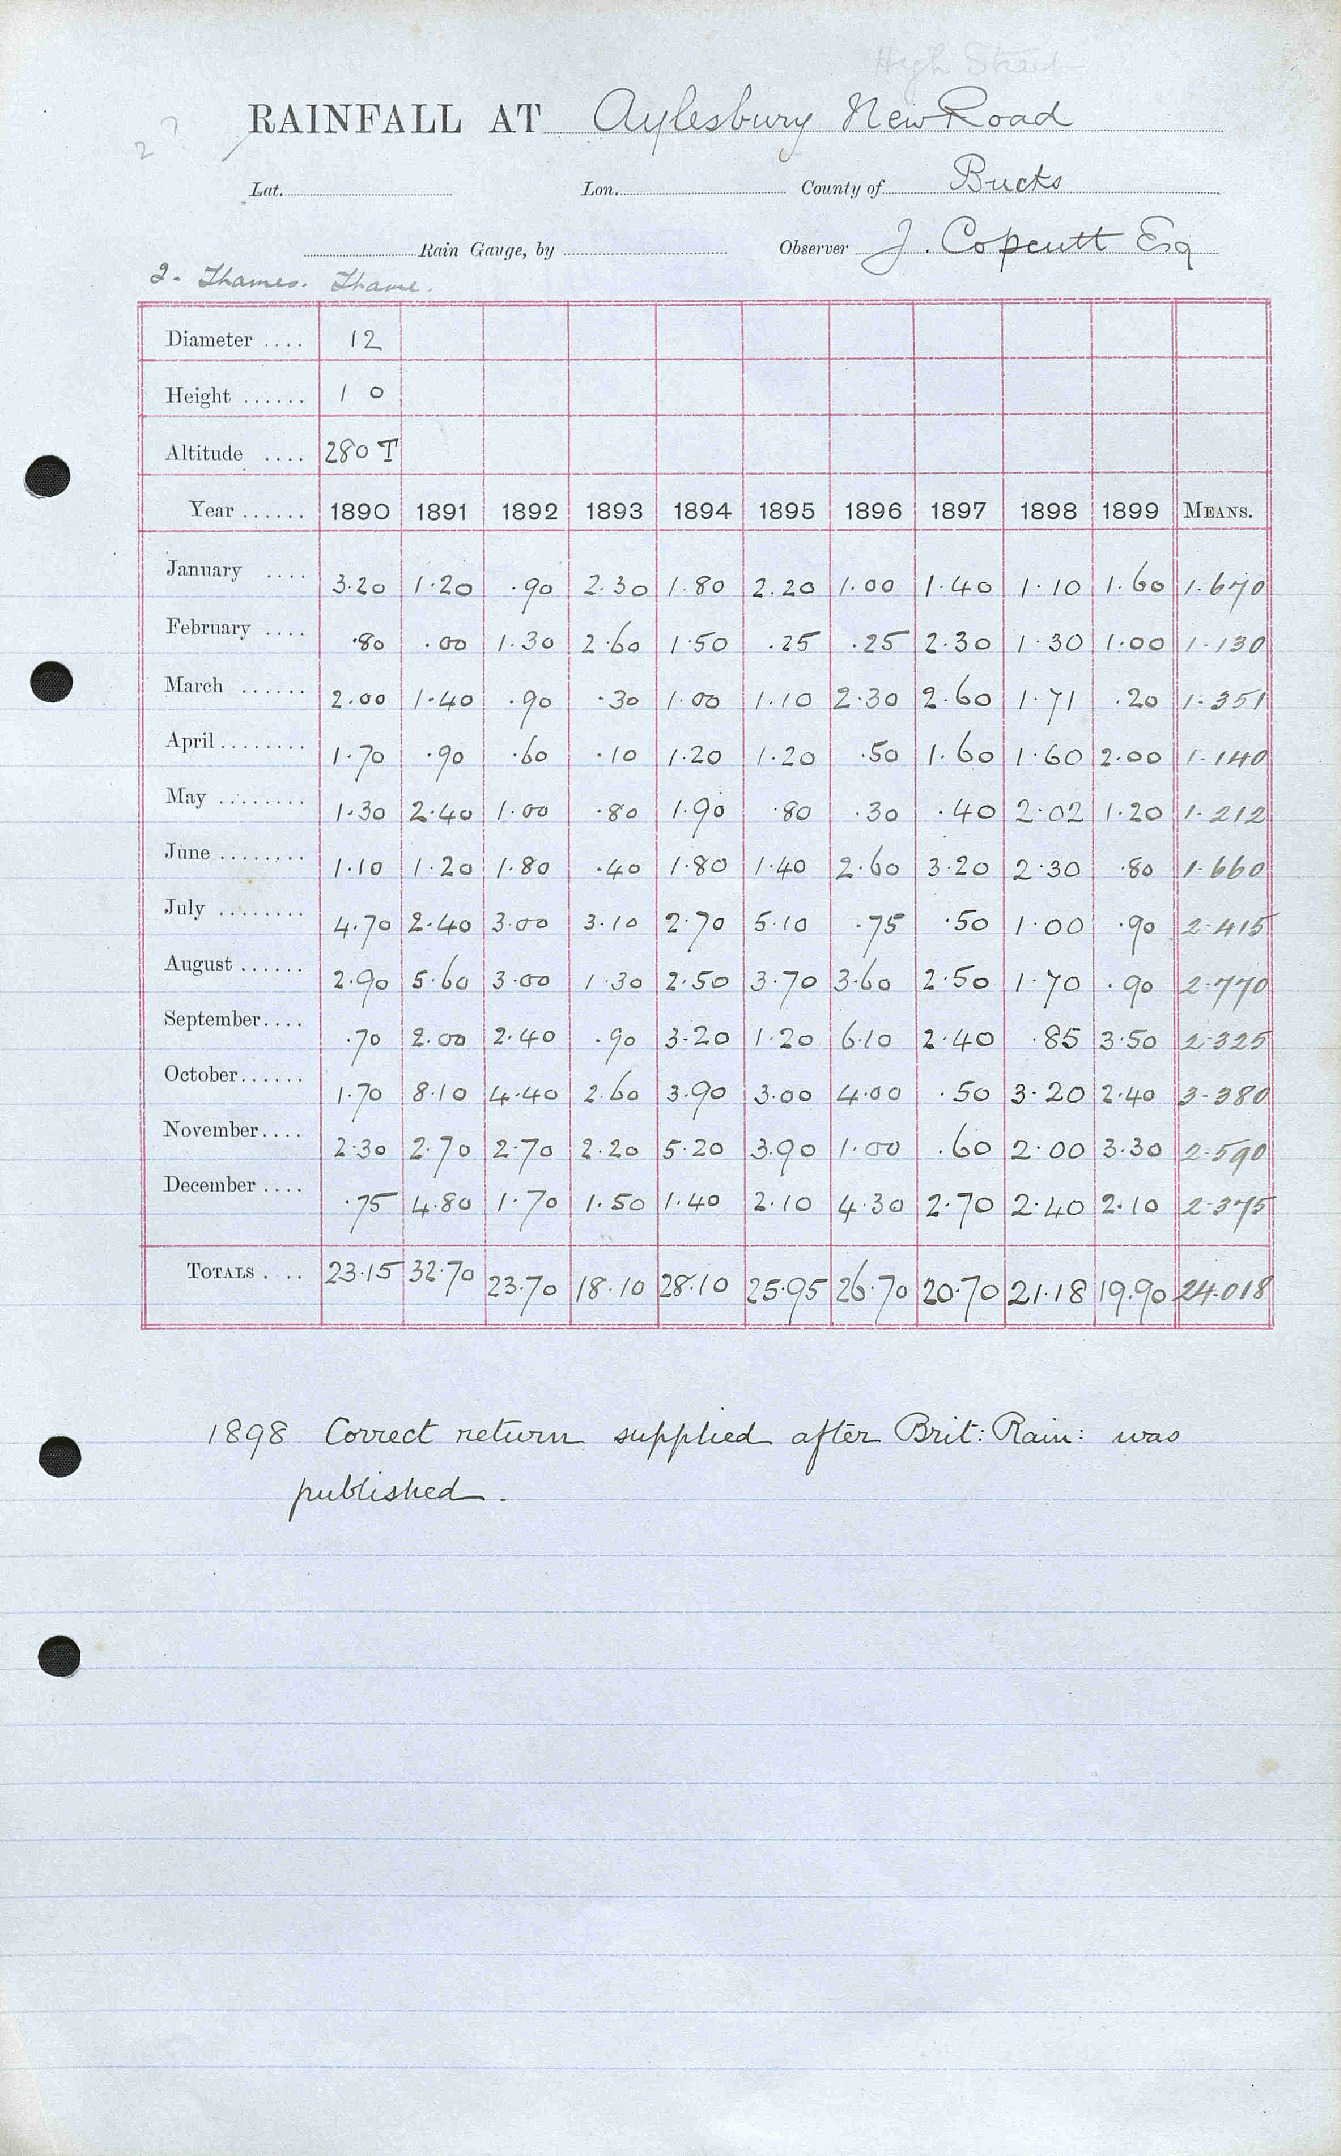 High Street
RAINFALL AT Aylesbury New Road
2
Lat. Lon. County of Bucks
Rain Gauge, by Observer J. Copcutt Esq
2. Thames. Thame.
Diameter .... 12
Height ...... 1 0
Altitude .... 280 T
Year ...... 1890 1891 1892 1893 1894 1895 1896 1897 1898 1899 MEANS.
January .... 3.20 1.20 .90 2.30 1.80 2.20 1.00 1.40 1.10 1.60 1.670
February .... .80 .00 1.30 2.60 1.50 .25 .25 2.30 1.30 1.00 1.130
March ...... 2.00 1.40 .90 .30 1.00 1.10 2.30 2.60 1.71 .20 1.351
April ........ 1.70 .90 .60 .10 1.20 1.20 .50 1.60 1.60 2.00 1.140
May ........ 1.30 2.40 1.00 .80 1.90 .80 .30 .40 2.02 1.20 1.212
June ........ 1.10 1.20 1.80 .40 1.80 1.40 2.60 3.20 2.30 .80 1.660
July ........ 4.70 2.40 3.00 3.10 2.70 5.10 .75 .50 1.00 .90 2.415
August ...... 2.90 5.60 3.00 1.30 2.50 3.70 3.60 2.50 1.70 .90 2.770
September.... .70 2.00 2.40 .90 3.20 1.20 6.10 2.40 .85 3.50 2.325
October...... 1.70 8.10 4.40 2.60 3.90 3.00 4.00 .50 3.20 2.40 3.380
November.... 2.30 2.70 2.70 2.20 5.20 3.90 1.00 .60 2.00 3.30 2.590
December .... .75 4.80 1.70 1.50 1.40 2.10 4.30 2.70 2.40 2.10 2.375
TOTALS .... 23.15 32.70 23.70 18.10 28.10 25.95 26.70 20.70 21.18 19.90 24.018
1898 Correct return supplied after Brit: Rain: was
published.